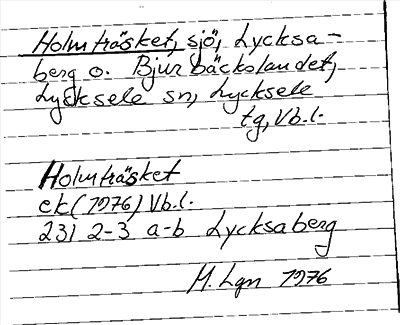 Holmträsket, sjö, Lycksa-
berg o. Bjurbäckslandet,
Lycksele sn, Lycksele
tg, Vb.l.
Holmträsket
ek (1976) Vb.l.
231 2-3 a-b Lycksaberg
M. Lgn 1976